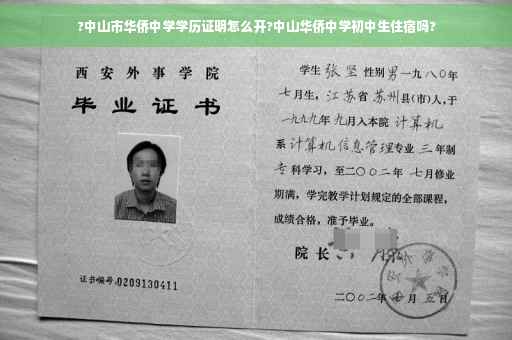 ?中山市华侨中学学历证明怎么开?中山华侨中学初中生住宿吗?
西安外事学院
毕业证书
证书编号:0209130411
学生 张坚 性别男一九八〇年
七月生,江苏省苏州县(市)人,于
一九九九年九月入本院 计算机
系 计算机信息管理专业 三 年制
专科学习,至二〇〇二年 七月修业
期满,学完教学计划规定的全部课程,
成绩合格,准予毕业。
院长
二〇〇二年 月五日